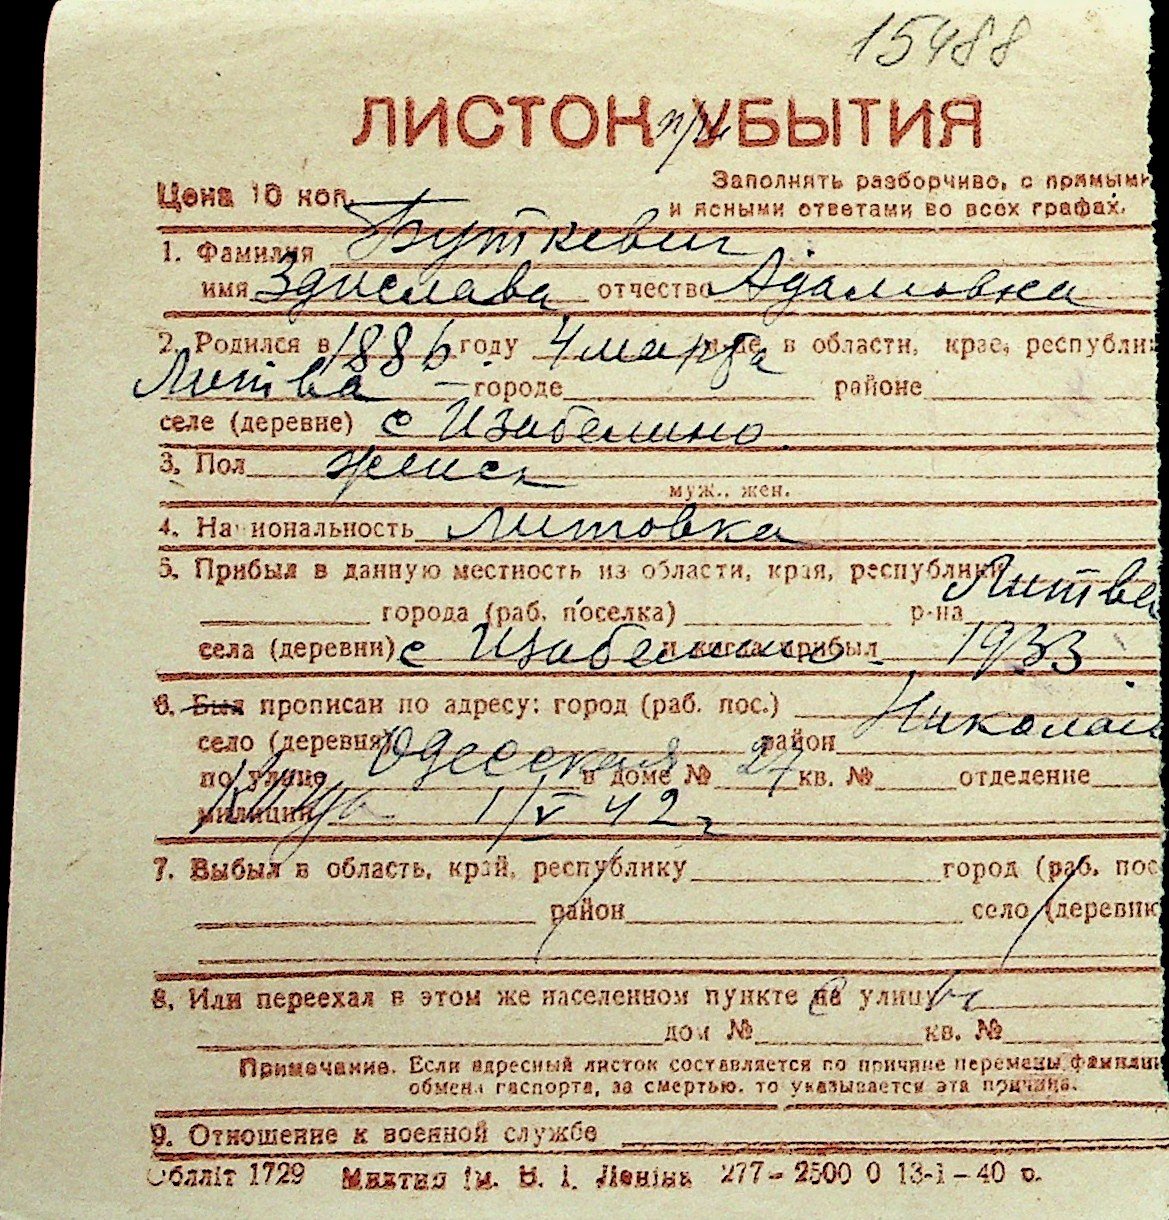 15488
ЛИСТОК при УБЫТИЯ
Цена 10 коп.
Заполнять разборчиво, с прямыми
и ясными ответами во всех графах.
1. Фамилия Буткевич
имя Здислава отчество Адамовна
2. Родился в 1886 году 4 марта в области, крае, республи
Литва – городе районе
селе (деревне) с Изабелино
3. Пол женск
муж., жен.
4. Национальность литовка
5. Прибыл в данную местность из области, края, республики Литва
города (раб. поселка) р-на
села (деревни) с Изабелино и когда прибыл 1933
6. Был прописан по адресу: город (раб. пос.) Николаев
село (деревня) район
по улице Одесская в доме № 27 кв. № отделение
милиции 1/V 42 г
7. Выбыл в область, край, республику город (раб. пос
район село (деревню
8. Или переехал в этом же населенном пункте на улицу
дом № кв. №
Примечание. Если адресный листок составляется по причине перемены фамилии
обмена паспорта, за смертью, то указывается эта причина.
9. Отношение к военной службе
Обліт 1729 Миктип ім. В. І. Леніна 277–2500 0 13-1–40 р.